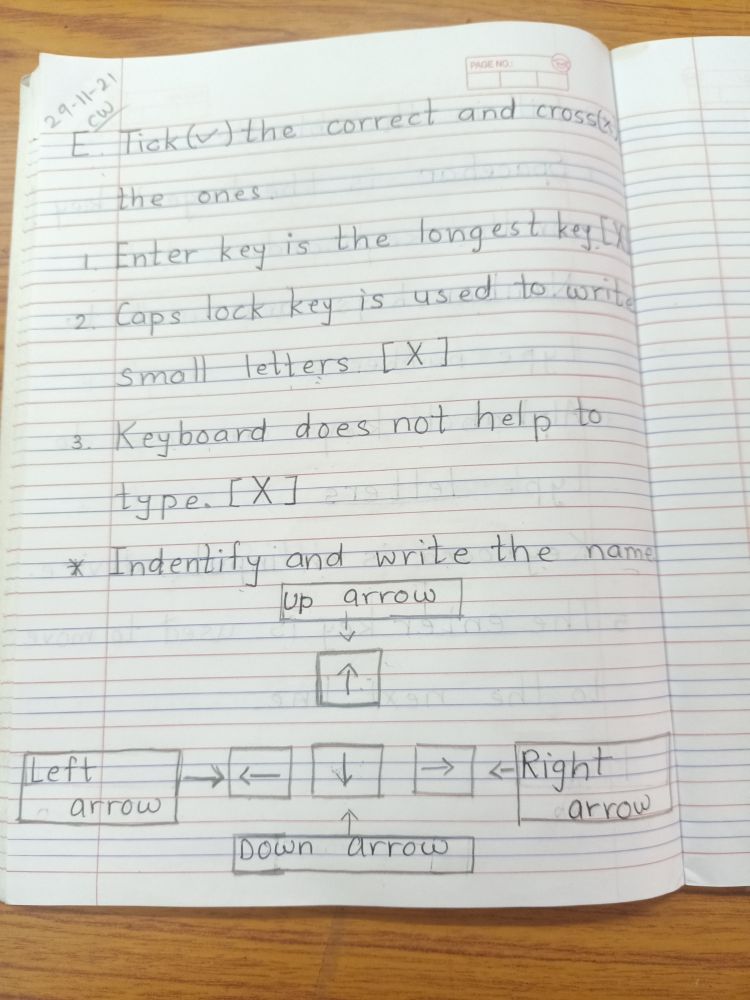 PAGE NO.:
29-11-21
CW
E. Tick(✓) the correct and cross(x)
the ones.
1. Enter key is the longest key. [X]
2. Caps lock key is used to write
small letters. [X]
3. Keyboard does not help to
type. [X]
* Indentify and write the name
Up arrow
↓
↑
Left → ← ↓ → ← Right
arrow arrow
↑
Down arrow